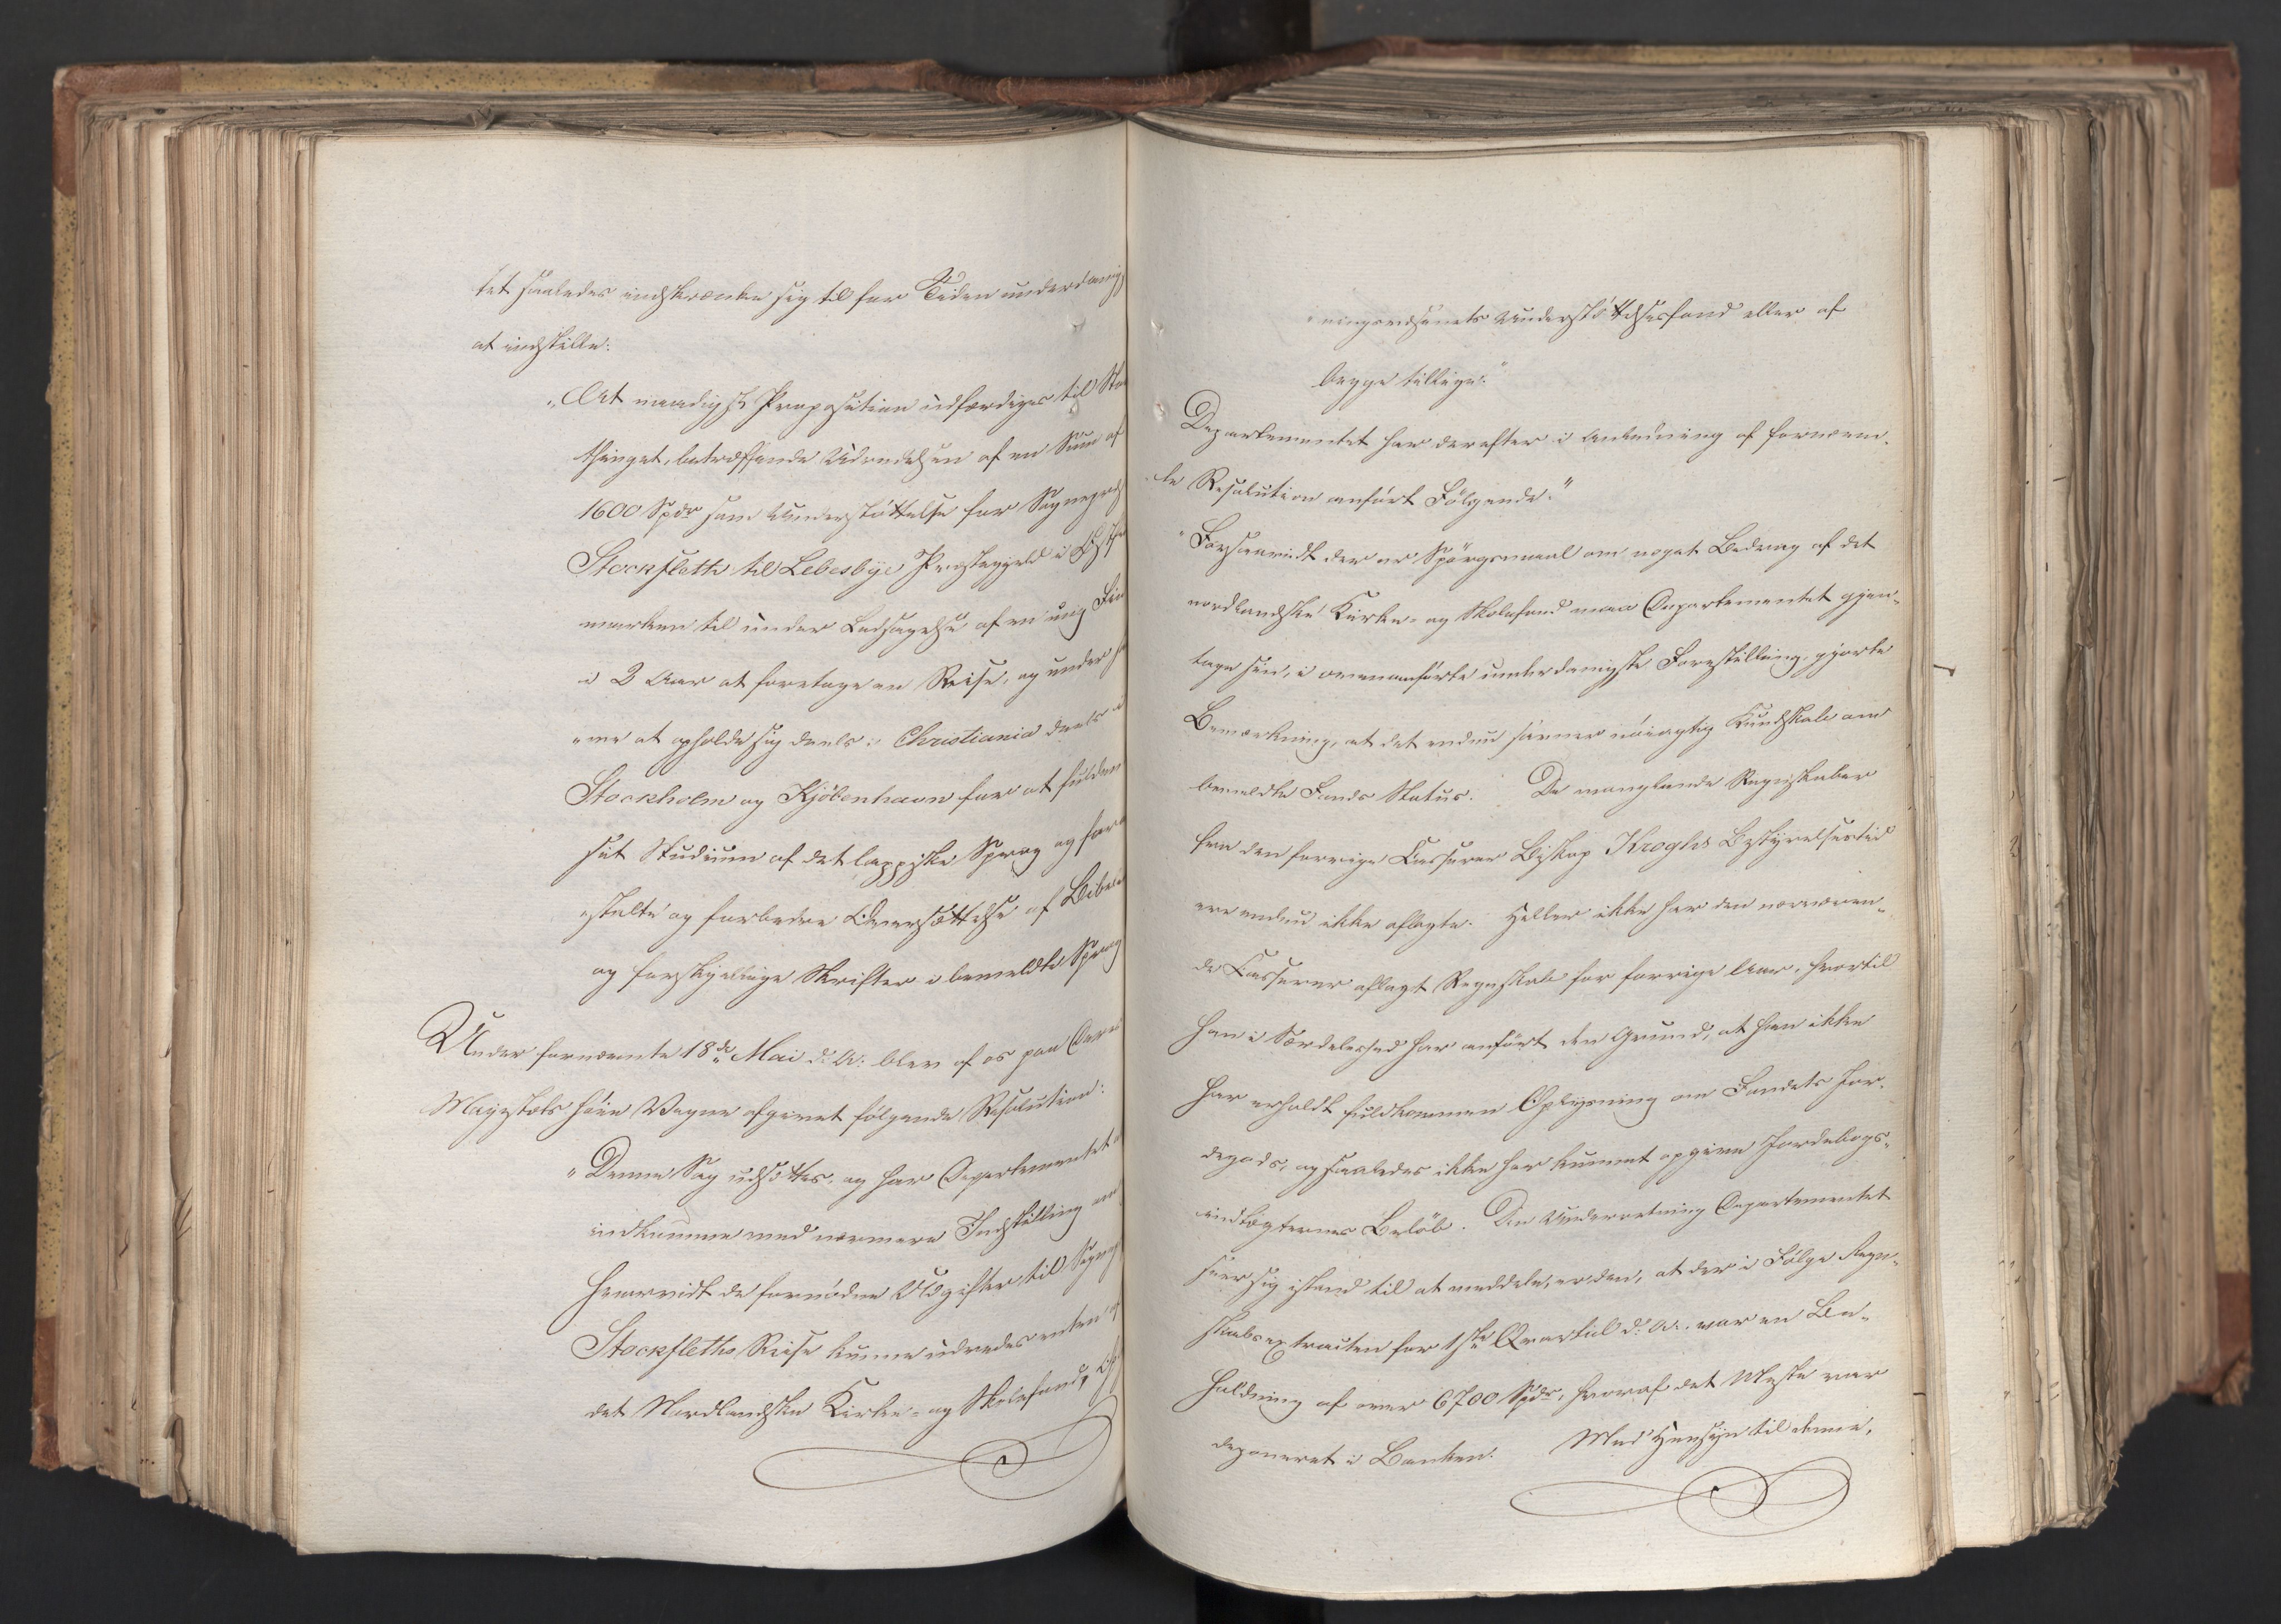 tet saaledes indskrænke sig til for Tiden underdanigst
at indstille:
„At naadigst Proposition udfærdiges til Stor
thinget, betræffende Udredelsen af en Sum af
1600 Spdr som Understøttelse for Sognepræst
Stockfleth til Lebesbye Præstegjeld i Østfin
marken til under Ledsagelse af en ung Fin
i 2 Aar at foretage en Reise, og under
at opholde sig deels i Christiania deels i
Stockholm og Kjöbenhavn for at fulden
sit Studium af det lappiske Sprog og for
og forbedre Oversættelse af Bibelen
og forskjellige Skrifter i bemeldte Sprog
Under fornævnte 18de Mai d: A: blev af os paa Deres
Majestæts høie Vegne afgivet følgende Resolution:
„Denne Sag udsættes, og har Departementet
indkomme med nærmere Indstilling om,
hvorvidt de fornødne Udgifter til Sogneprest
Stockfleths Reise kunne udredes enten af
det Nordlandske Kirke- og Skolefond,
Understøttelsesfond eller af
begge tillige."
Departementet har derefter i Anledning af fornævn-
te Resolution anført Følgende:"
"Forsaavidt der er Spørgsmaal om noget Bidrag af det
nordlandske Kirke- og Skolefond maa Departementet gjen-
tage sin, i ovenanførte underdanigste Forestilling, gjorte
Bemærkning, at det endnu savner nøiagtig Kundskab om
bemeldte Fonds Status. De manglende Regnskaber
fra den forrige Casserer Biskop Kroghs Bestyrelsestid
ere endnu ikke aflagte. Heller ikke har den nærværen-
de Casserer aflagt Regnskab for forrige Aar, hvortil
han i Særdeleshed har anført den Grund, at han ikke
har erholdt fuldkommen Oplysning om Fondets Jor-
degods, og saaledes ikke har kunnet opgive Jordebogs-
indtægternes Beløb. Den Underretning Departementet
seer sig istand til at meddele, er den, at der i Følge Regn-
skabsextracten for 1ste Qvartal d: A: var en Be-
holdning af over 6700 Spdr, hvoraf det Meste var
deponeret i Banken. Med Hensyn til denne,